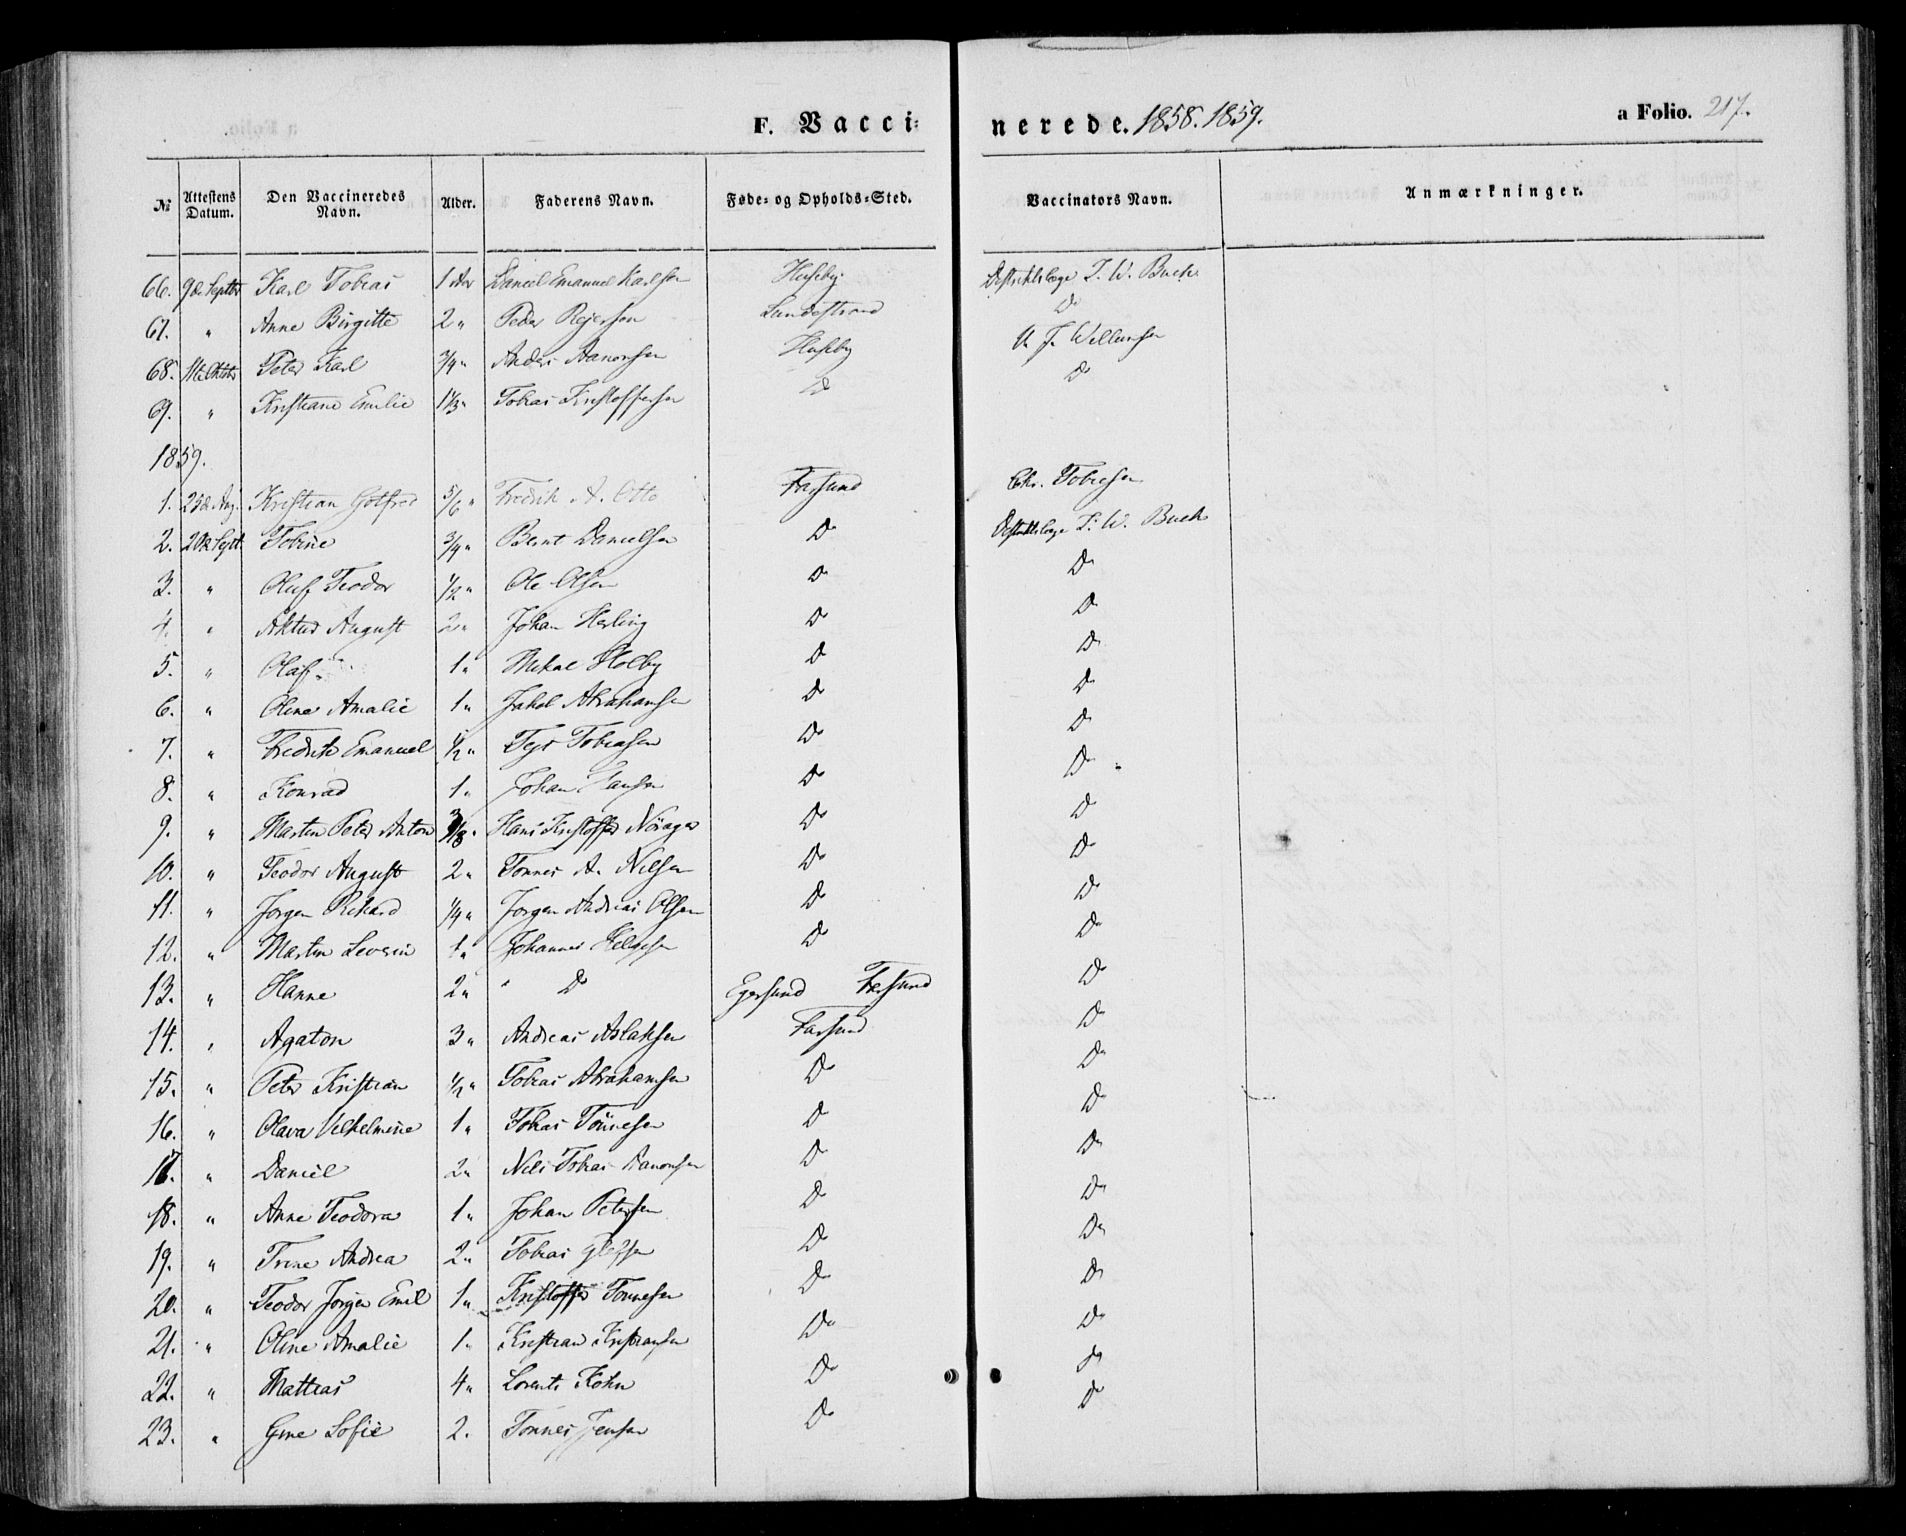 F. Vacci= nerede. 1858. 1859. a Folio. 217.
№ Attestens Datum. Den Vaccineredes Navn. Alder. Faderens Navn. Føde- og Opholds-Sted. Vaccinators Navn. Anmærkninger.
66. 9de Septbr Karl Tobias 1 Aar Daniel Emanuel Karlsen Huseby Distriktslæge T. W. Buch
67. " Anne Birgitte 2 " Peder Rejersen Lundestrand Do
68. 11te Oktbr Peter Karl 3/4 " Anders Aanonsen Huseby A. J. Willumsen
69. " Kristiane Emilie 1 1/3 " Tobias Kristoffersen Do Do
1859.
1. 23de Aug. Kristian Gotfred 5/6 " Fredrik A. Otto Farsund Chr. Tobiesen
2. 20de Sept. Tobine 3/4 " Bernt Danielsen Do Distriktslæge T. W. Buch
3. " Oluf Teodor 1/2 " Ole Olsen Do Do
4. " August 2 " Johan Herling Do Do
5. " Olaf. 1 " Mikal Holby Do Do
6. " Oline Amalie 1 " Jakob Abrahamsen Do Do
7. " Fredrik Emanuel 1/2 " Tejs Tobiasen Do Do
8. " Konrad 1 " Johan Hansen Do Do
9. " Martin Peter Anton 3/8 " Hans Kristoffer Do Do
10. " Teodor August 2 " Tønnes A. Nilsen Do Do
11. " Jørgen Rikard 1/4 " Jørgen Andreas Olsen Do Do
12. " Martin Severin 1 " Johannes Helgesen Do Do
13. " Hanne 2 " " Do Egersund Farsund Do
14. " Agaton 3 " Andreas Aslaksen Farsund Do
15. " Peter Kristian 1/2 " Tobias Abrahamsen Do Do
16. " Olava Vilhelmine 1 " Tobias Tønnesen Do Do
17. " Daniel 2 " Nils Tobias Aanonsen Do Do
18. " Anne Teodora 1 " Johan Petersen Do Do
19. " Trine Andrea 2 " Tobias Do Do
20. " Teodor Jørgen Emil 1 " Kristoffer Tønnesen Do Do
21. " Oline Amalie 1 " Kristian Kristiansen Do Do
22. " Mattias 4 " Lorents Kohn Do Do
23. " Gine Sofie 2. Tønnes Jensen Do Do